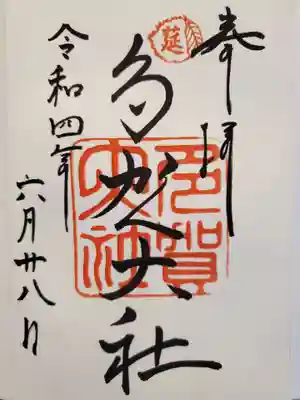 奉拝
延
多賀大社
多賀大社
令和四年
六月廿八日